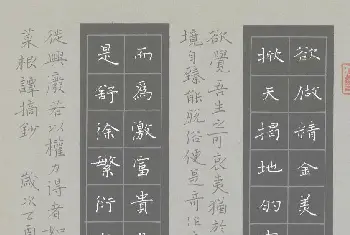 欲做精金美
掀天揭地的
欲覺吾生之可哀夷猶於
境自臻能脫俗便是奇
而為激富貴
是舒徐繁衍
從興廢若以權力得者如
菜根譚摘鈔 歲次